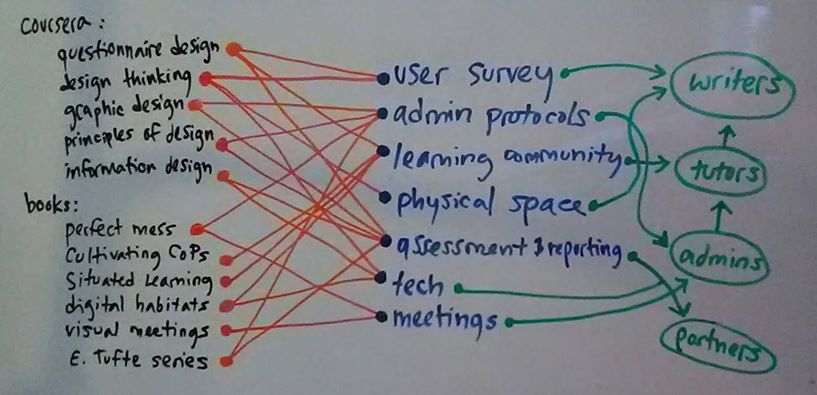 coursera:
questionnaire design
design thinking
graphic design
principles of design
information design
books:
perfect mess
Cultivating CoPs
Situated Learning
digital habitats
visual meetings
E. Tufte series
user survey
admin protocols
learning community
physical space
assessment & reporting
tech
meetings
writers
tutors
admins
partners